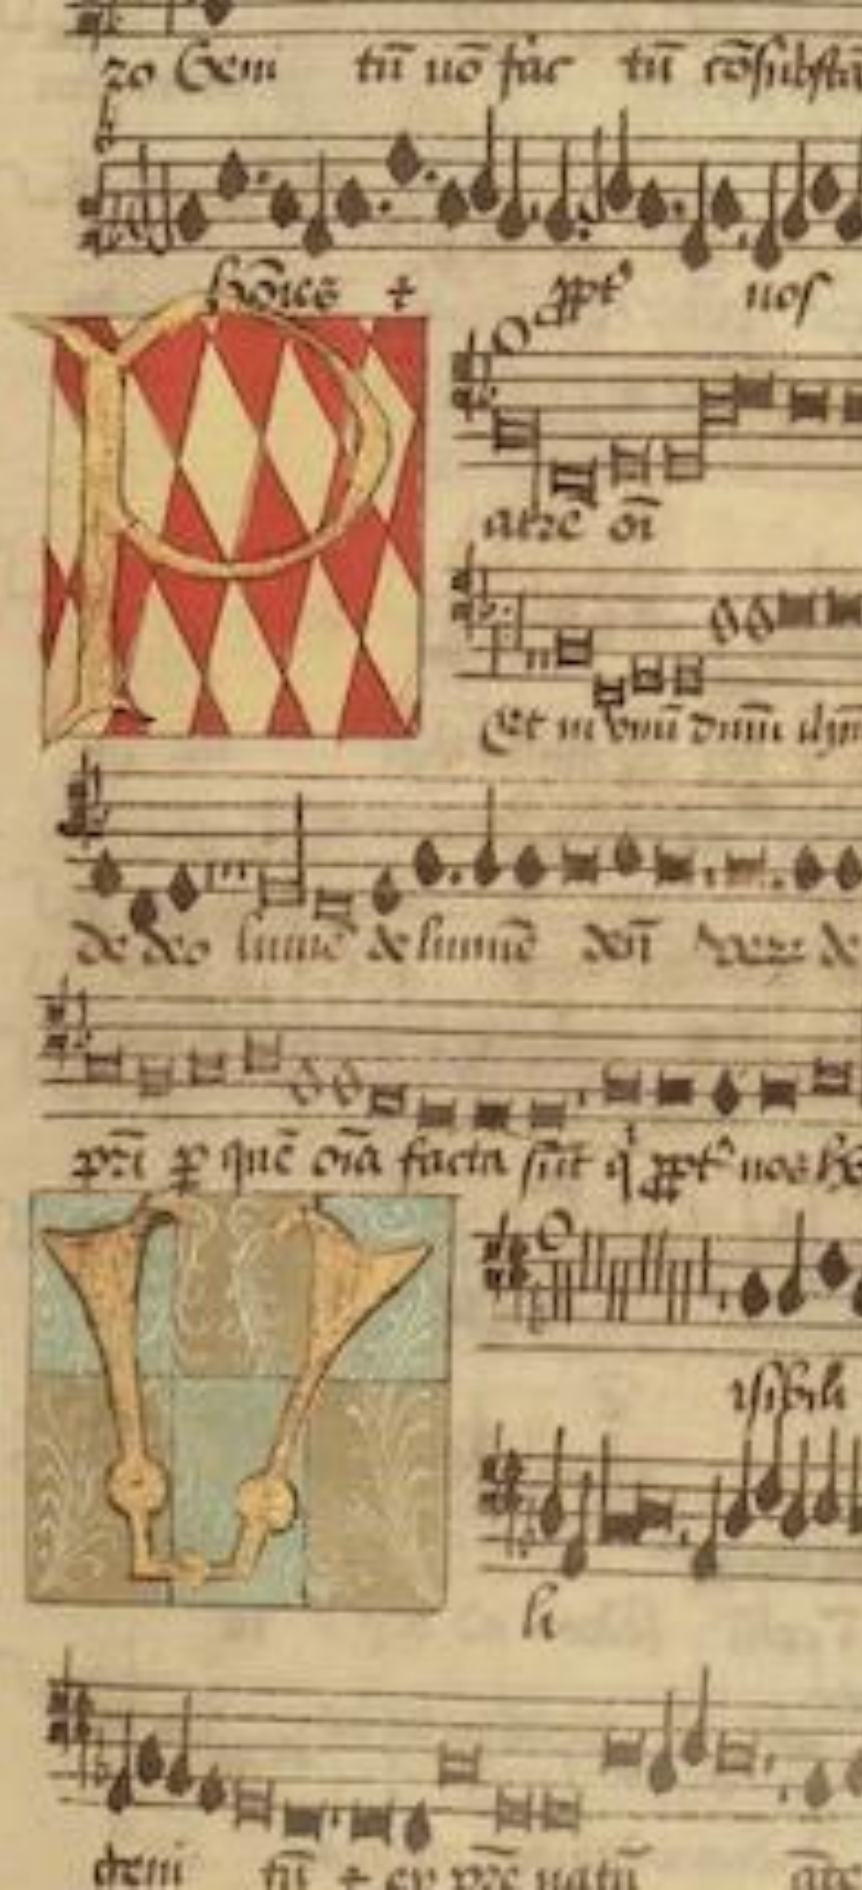 zo Geni tū nō fac tū cōsubsta
hōıēs ꝛ ꝓpt' nos
P atrē oī
Et in vnū dnm̄ ihm
de deo lumē de lumīe deū de
pr̄i ꝑ quē oīa facta sūt q̇ ꝓpt' nos ho
V isibili
li
tū ꝛ ex pr̄e natū ante